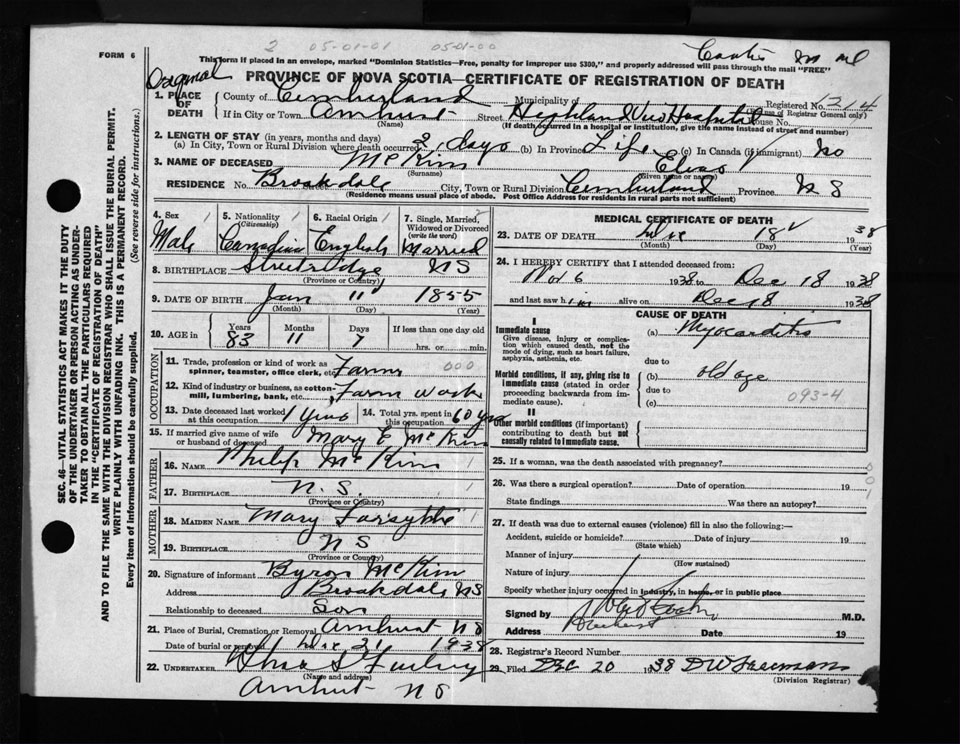 FORM 6
2 05-01-01 05-01-00
This form if placed in an envelope, marked "Dominion Statistics—Free, penalty for improper use $300," and properly addressed will pass through the mail "FREE"
Original
PROVINCE OF NOVA SCOTIA—CERTIFICATE OF REGISTRATION OF DEATH
SEC. 46—VITAL STATISTICS ACT MAKES IT THE DUTY
OF THE UNDERTAKER OR PERSON ACTING AS UNDER-
TAKER TO OBTAIN ALL THE PARTICULARS REQUIRED
IN THE "CERTIFICATE OF REGISTRATION OF DEATH"
AND TO FILE THE SAME WITH THE DIVISION REGISTRAR WHO SHALL ISSUE THE BURIAL PERMIT.
WRITE PLAINLY WITH UNFADING INK. THIS IS A PERMANENT RECORD.
Every item of information should be carefully supplied. (See reverse side for instructions.)
1. PLACE OF DEATH County of Cumberland Municipality of Registered No. 214
(For use of Registrar General only)
If in City or Town Amherst Street Highland View Hospital House No.
(Name) (If death occurred in a hospital or institution, give the name instead of street and number)
2. LENGTH OF STAY (in years, months and days)
(a) In City, Town or Rural Division where death occurred 2 days (b) In Province Life (c) In Canada (if immigrant) No
3. NAME OF DECEASED McKim
(Surname) (Given name or names)
RESIDENCE No. Brookdale City, Town or Rural Division Cumberland Province N S
(Residence means usual place of abode. Post Office Address for residents in rural parts not sufficient)
4. Sex 5. Nationality (Citizenship) 6. Racial Origin 7. Single, Married, Widowed or Divorced (write the word)
Male Canadian English Married
8. BIRTHPLACE NS
(Province or County)
9. DATE OF BIRTH Jan 11 1855
(Month) (Day) (Year)
10. AGE in Years Months Days If less than one day old
83 11 7 hrs. or min.
OCCUPATION
11. Trade, profession or kind of work as spinner, teamster, office clerk, etc. 000
12. Kind of industry or business, as cotton-mill, lumbering, bank, etc. Farm work
13. Date deceased last worked at this occupation 14. Total yrs. spent in this occupation 60 yrs
15. If married give name of wife or husband of deceased Mary E McKim
FATHER
16. NAME Philip McKim
17. BIRTHPLACE N.S.
(Province or Country)
MOTHER
18. MAIDEN NAME Mary Forsythe
19. BIRTHPLACE N S
(Province or Country)
20. Signature of informant Byron McKim
Address Brookdale NS
Relationship to deceased Son
21. Place of Burial, Cremation or Removal Amherst N S
Date of burial or removal Dec 1938
22. UNDERTAKER
(Name and address)
Amherst N S
MEDICAL CERTIFICATE OF DEATH
23. DATE OF DEATH Dec 18 1938
(Month) (Day) (Year)
24. I HEREBY CERTIFY that I attended deceased from:
Nov 6 1938 to Dec 18 1938
and last saw him alive on Dec 18 1938
CAUSE OF DEATH
I
Immediate cause (a) Myocarditis
Give disease, injury or complication which caused death, not the mode of dying, such as heart failure, asphyxia, asthenia, etc.
due to
Morbid conditions, if any, giving rise to immediate cause (stated in order proceeding backwards from immediate cause). (b) old age
due to 093-4
(c)
II
Other morbid conditions (if important) contributing to death but not causally related to immediate cause.
25. If a woman, was the death associated with pregnancy?
26. Was there a surgical operation? Date of operation 19
State findings Was there an autopsy?
27. If death was due to external causes (violence) fill in also the following:—
Accident, suicide or homicide? Date of injury 19
(State which)
Manner of injury
(How sustained)
Nature of injury
Specify whether injury occurred in industry, in home, or in public place
Signed by M.D.
Address Amherst Date 19
28. Registrar's Record Number
29. Filed Dec 20 1938
(Division Registrar)